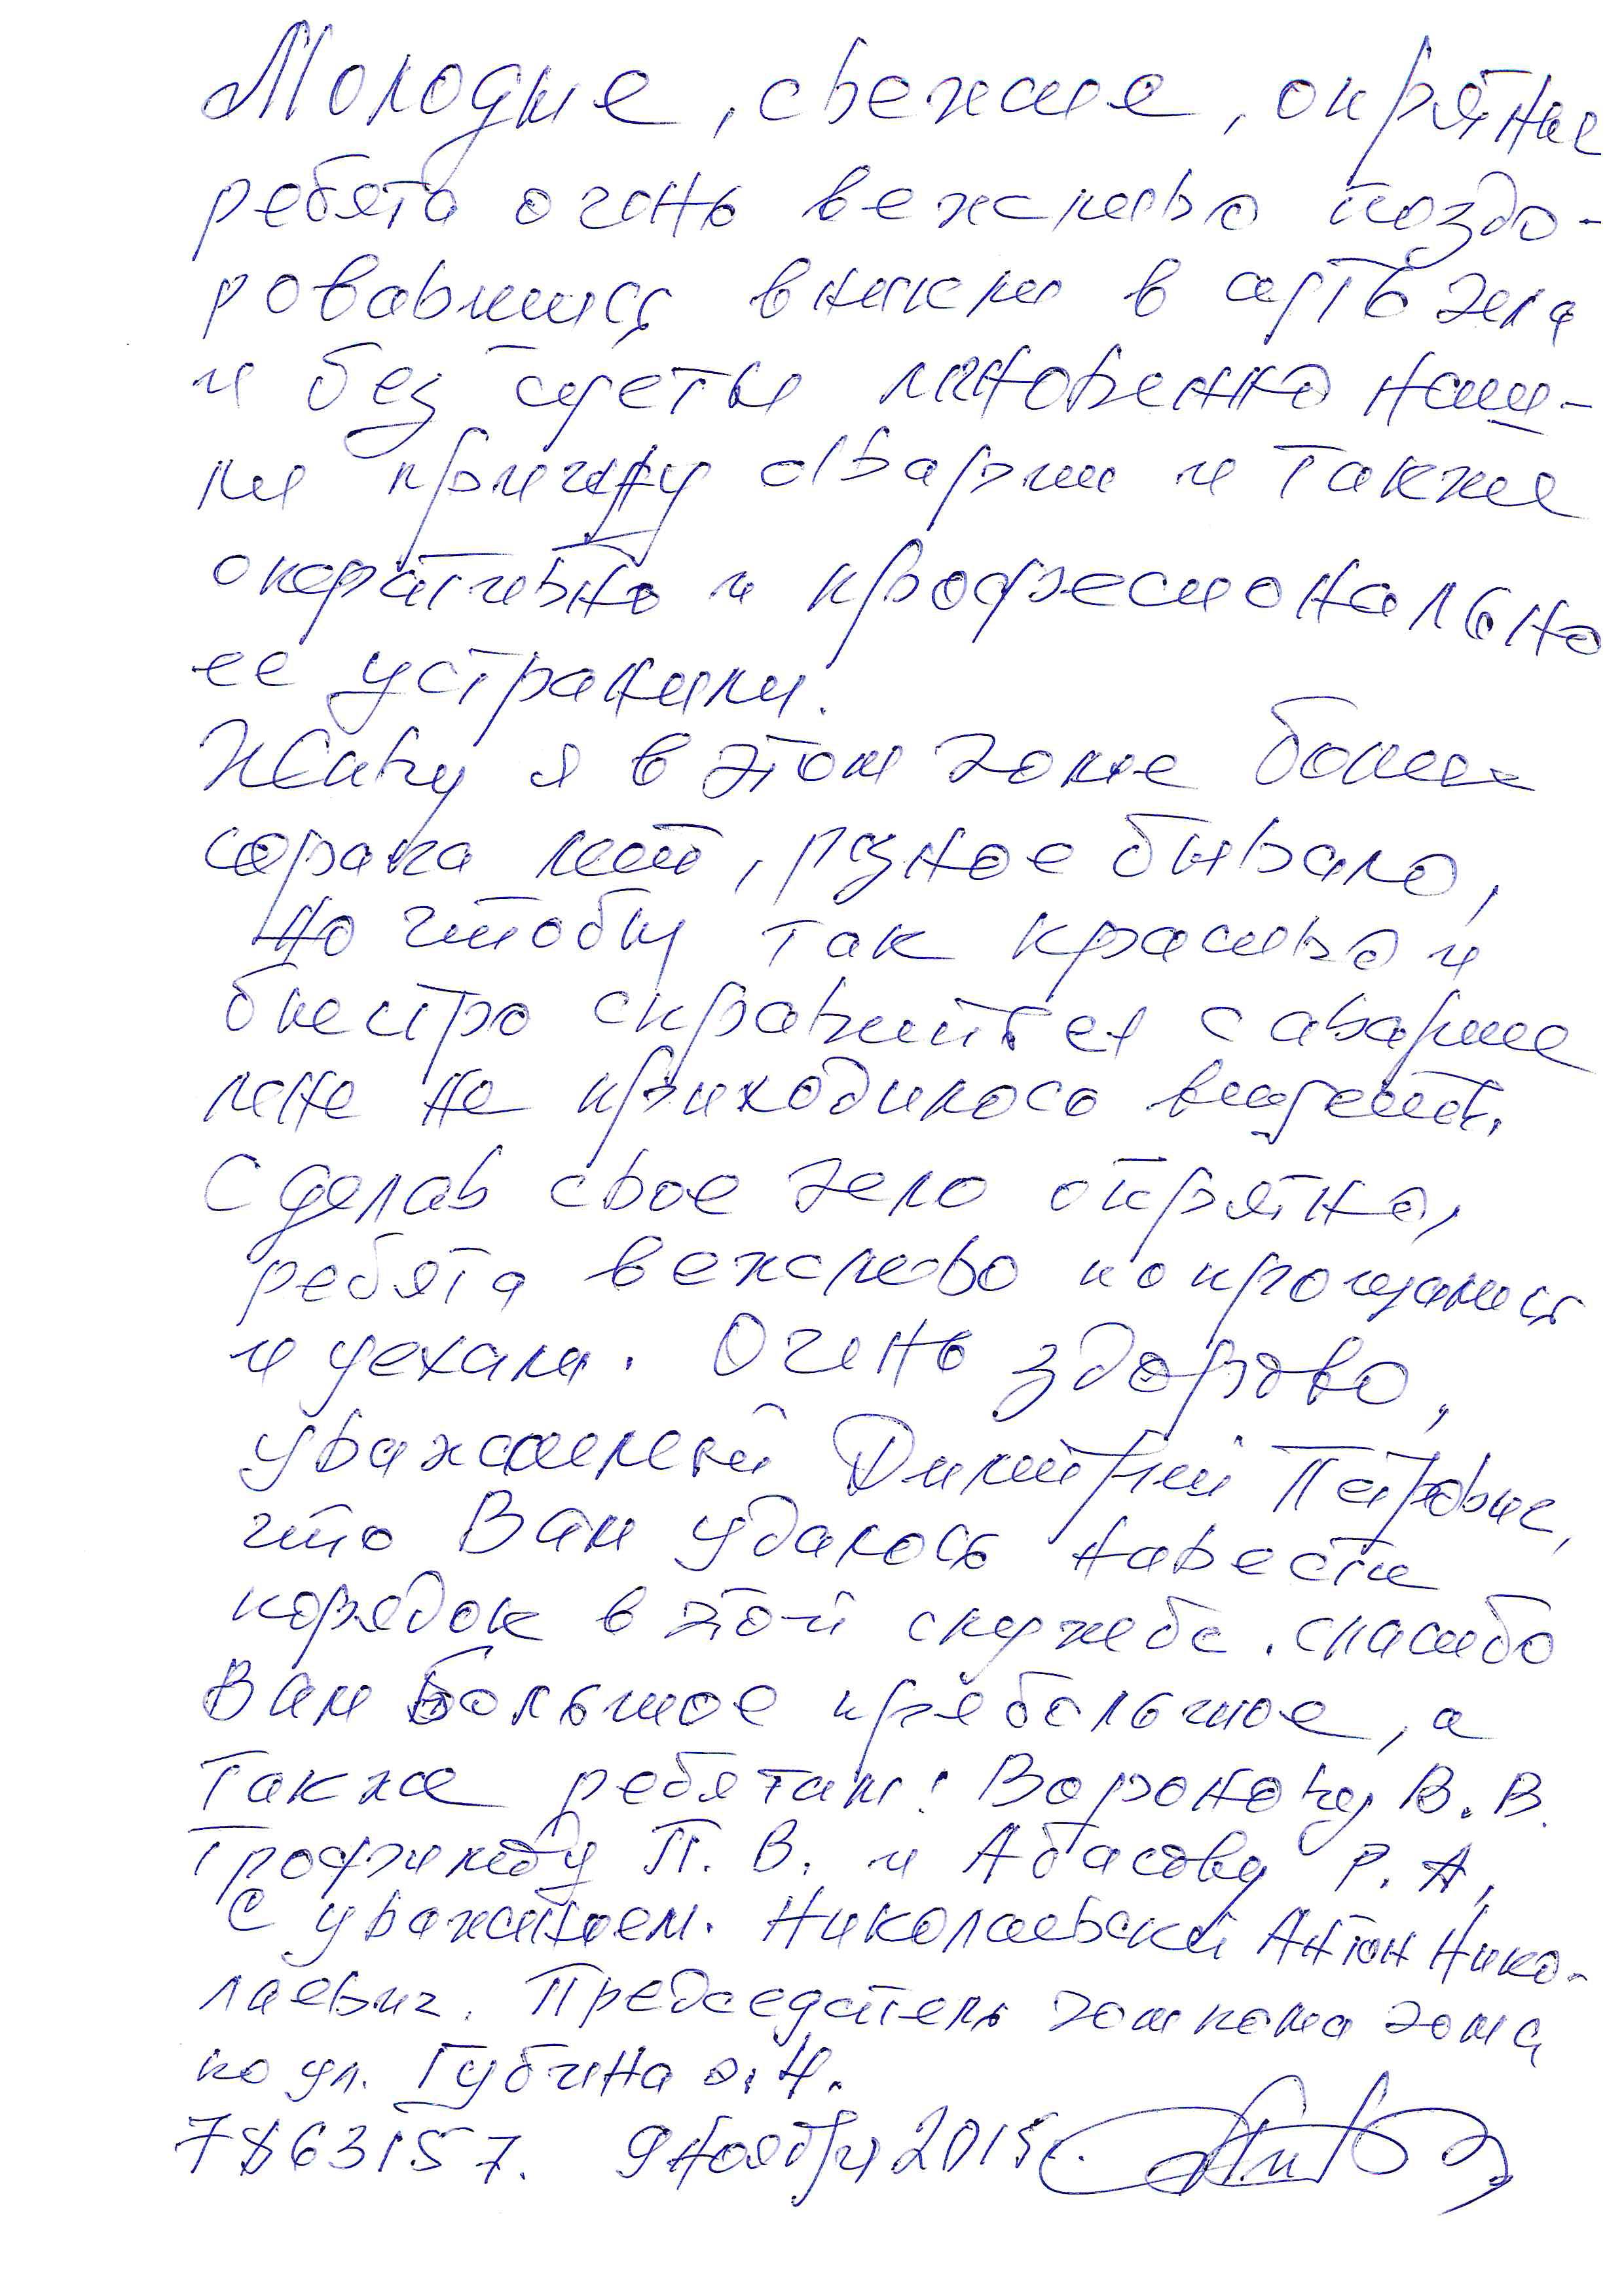 Молодые, свежие, опрятные
ребята очень вежливо поздо-
ровавшись вникли в суть дела
и без суеты мгновенно наш-
ли причину аварии и также
оперативно и профессионально
ее устранили.
Живу я в этом доме более
сорока лет, разное бывало,
но чтобы так красиво и
быстро справиться с аварией
мне не приходилось видеть.
Сделав свое дело опрятно,
ребята вежливо попрощались
и уехали. Очень здорово,
уважаемый Димитрий Петрович,
что Вам удалось навести
порядок в этой службе. спасибо
Вам большое пребольшое, а
также ребятам: Воронову В.В.
Трофимову П.В. и Абасову Р.А,
С уважением. Николаевский Антон Нико-
лаевич. Председатель домкома дома
по ул. Губина д.4.
7863157. 9 ноября 2015г.